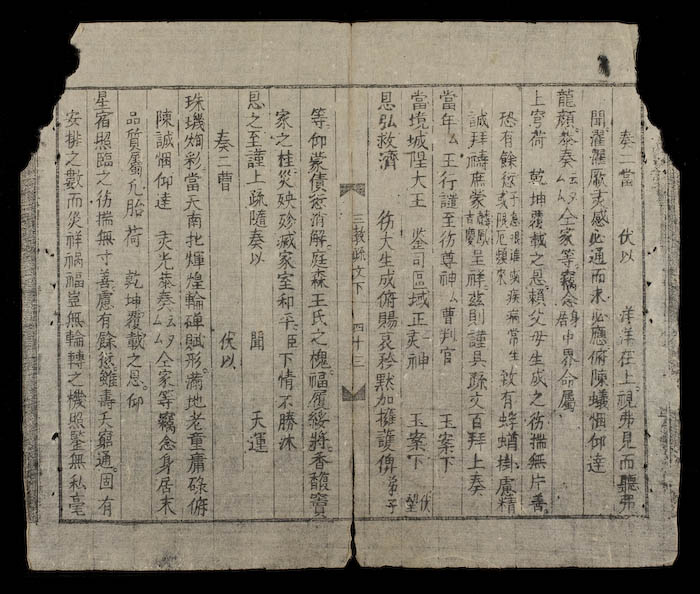 奏二當　伏以　洋洋在上視弗見而聽弗
聞濯濯厥灵感必通而求必應俯陳蟻悃仰達
龍顏恭奏云云厶厶仝家等竊念身居中界命屬
上穹荷　乾坤覆載之恩賴父母生成之德揣無片善
恐有餘愆或限厄頻來疾病常生致有蜉蝣樹慮精
誠拜禱庶蒙麟鳳吉慶呈祥茲則謹具疏文百拜上奏
當年厶王行譴至德尊神厶曹判官　玉案下
當境城隍大王　鉴司區域正灵神　玉案下　伏望
恩弘救濟　德大生成俯賜哀矜默加擁護俾弟子
三教疏文下　四十三
等仰蒙債愆消解庭森王氏之槐福履綏將香馥竇
家之桂災殃殄滅家室和平臣下情不勝沐
恩之至謹上疏隨奏以　聞　天運
奏二曹　伏以
珠璣炯彩當天南北輝煌輪磾賦形滿地老童庸碌俯
陳誠悃仰達　灵光恭奏云云厶厶仝家等竊念身居末
品質屬凡胎荷　乾坤覆載之恩仰
星宿照臨之德揣無寸善慮有餘愆雖壽夭窮通固有
安排之數而災祥禍福豈無輪轉之機照鑒無私毫